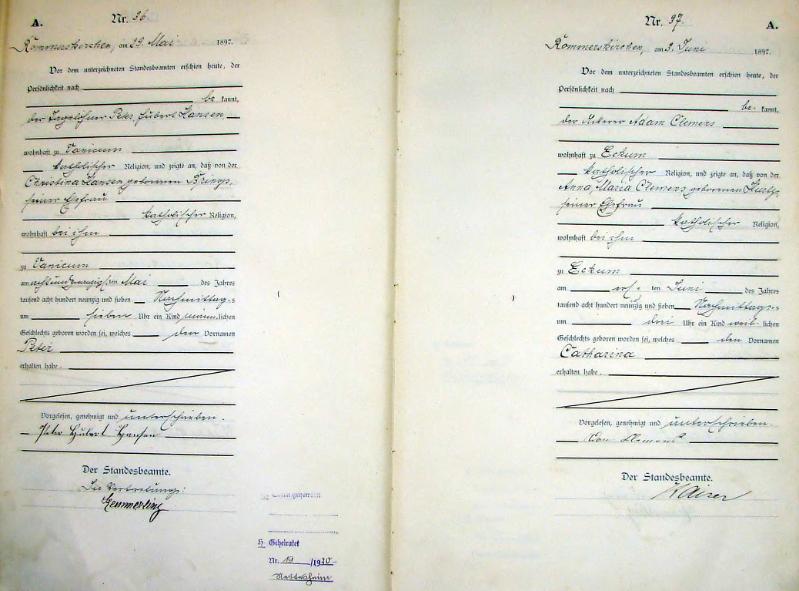 A.
Nr. 36
Rommerskirchen, am 29 Mai 1897.
Vor dem unterzeichneten Standesbeamten erschien heute, der
Persönlichkeit nach
be kannt,
der Tagelöhner Peter Hubert Hansen
wohnhaft zu Vanicum
katholischer Religion, und zeigte an, daß von der
Christina Hansen geborenen Brings,
seiner Ehefrau
katholischer Religion,
wohnhaft bei ihm
zu Vanicum
am achtundzwanzigsten Mai des Jahres
tausend acht hundert neunzig und sieben Nachmittag s
um sieben Uhr ein Kind männlichen
Geschlechts geboren worden sei, welches den Vornamen
Peter
erhalten habe.
Vorgelesen, genehmigt und unterschrieben.
Peter Hubert Hansen
Der Standesbeamte.
In Vertretung:
H. Geheiratet
Nr. /1920
Nettesheim
Nr. 37.
A.
Rommerskirchen, am 3. Juni 1897.
Vor dem unterzeichneten Standesbeamten erschien heute, der
Persönlichkeit nach
be kannt,
der Ackerer Adam Clemens
wohnhaft zu Eckum
katholischer Religion, und zeigte an, daß von der
Anna Maria Clemens geborenen
seiner Ehefrau
katholischer Religion,
wohnhaft bei ihm
zu Eckum
am ersten Juni des Jahres
tausend acht hundert neunzig und sieben Nachmittags
um drei Uhr ein Kind weiblichen
Geschlechts geboren worden sei, welches den Vornamen
Catharina
erhalten habe.
Vorgelesen, genehmigt und unterschrieben.
Clemens
Der Standesbeamte.
Kaiser